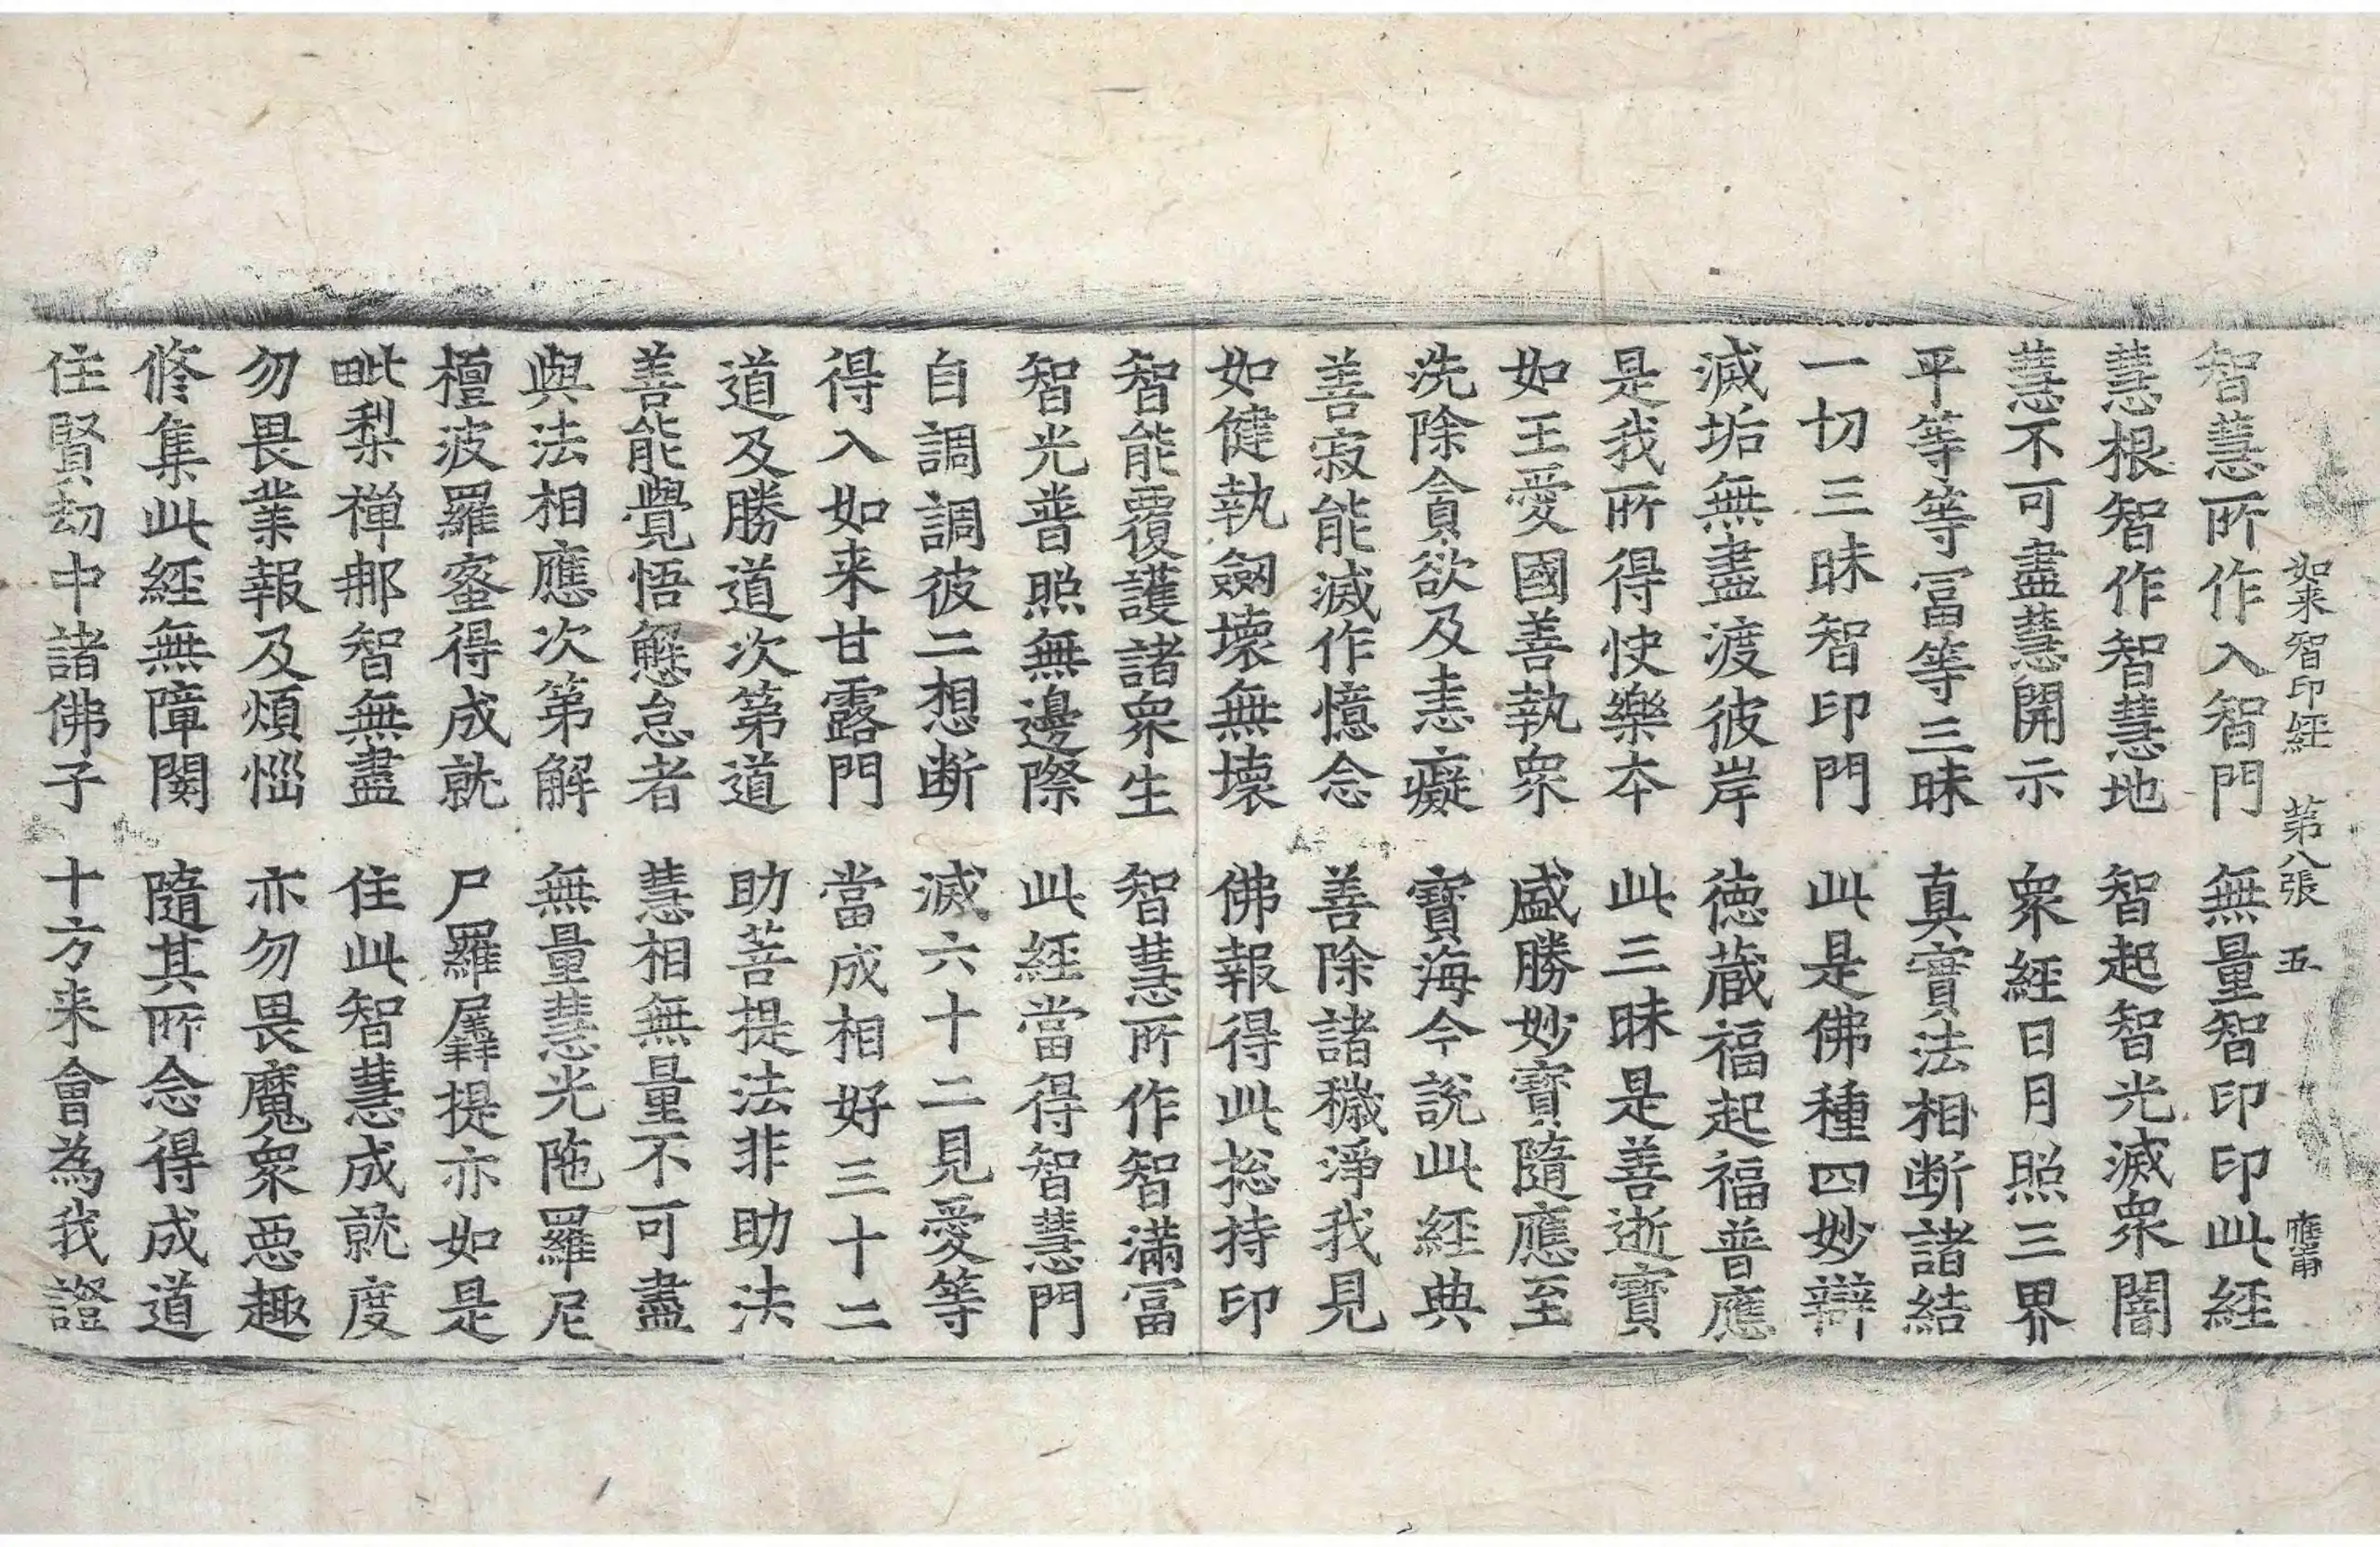 如来智印經 第八張 五 應甫
智慧所作入智門 無量智印印此經
慧根智作智慧地 智起智光滅衆闇
慧不可盡慧開示 衆經日月照三界
平等等冨等三昧 真實法相断諸結
一切三昧智印門 此是佛種四妙辯
滅垢無盡渡彼岸 徳蔵福起福普應
是我所得快樂本 此三昧是善逝寶
如王愛國善執衆 盛勝妙寳隨應至
洗除貪欲及恚癡 寶海今說此經典
善寂能滅作憶念 善除諸穢淨我見
如健執劔壊無壊 佛報得此捴持印
智能覆護諸衆生 智慧所作智滿冨
智光普照無邊際 此經當得智慧門
自調調彼二想断 滅六十二見愛等
得入如来甘露門 當成相好三十二
道及勝道次第道 助菩提法非助法
善能覺悟懈怠者 慧相無量不可盡
與法相應次第解 無量慧光陁羅尼
檀波羅蜜得成就 尸羅羼提亦如是
毗梨禪那智無盡 住此智慧成就度
勿畏業報及煩惱 亦勿畏魔衆惡趣
修集此經無障閡 隨其所念得成道
住賢劫中諸佛子 十方来會為我證